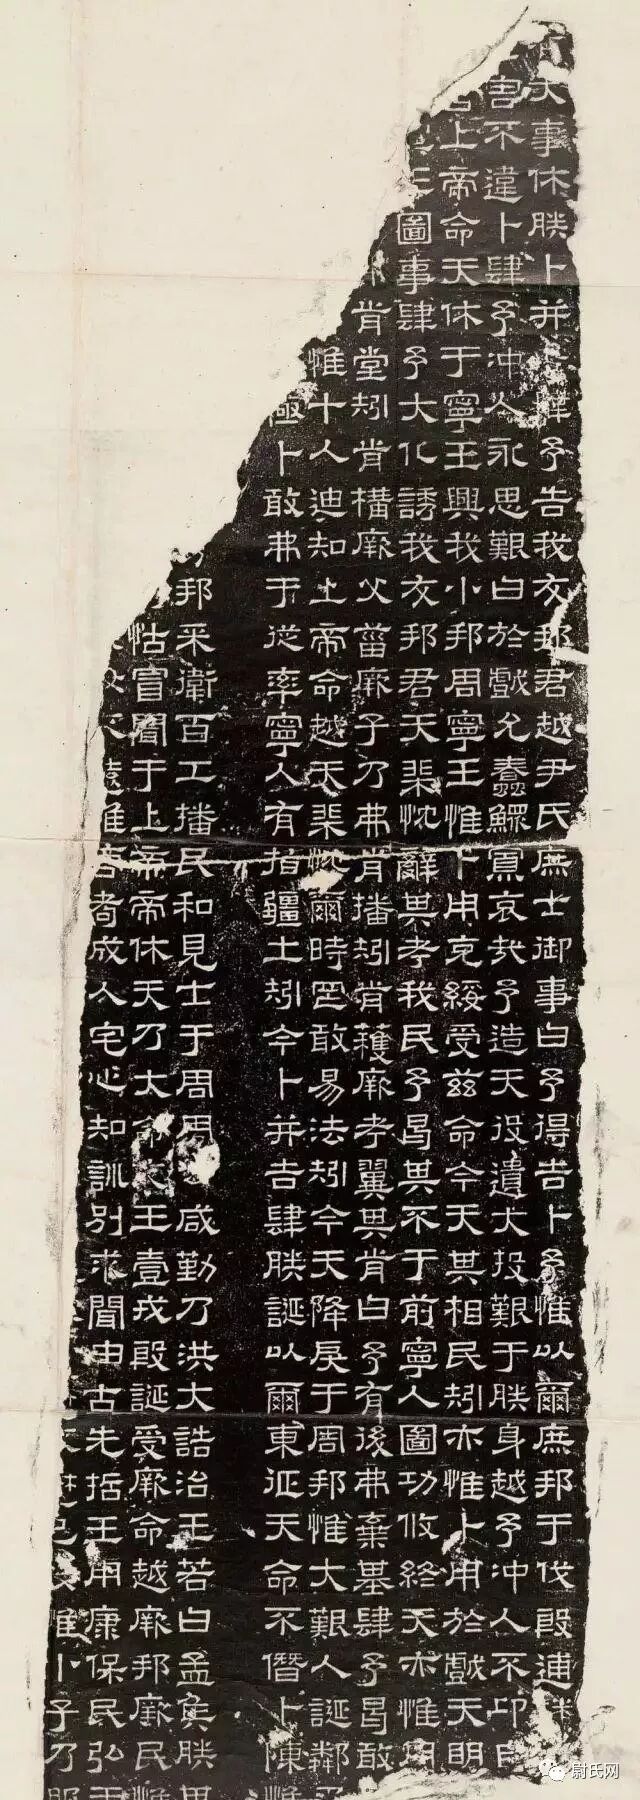 大事休朕卜并肆予告我友邦君越尹氏庶士御事曰予得吉卜予惟以爾庶邦于伐殷逋
害不違卜肆予沖人永思艱曰於戲允蠢鰥寡哀哉予造天役遺大投艱于朕身越予沖人不卬自
上帝命天休于寧王興我小邦周寧王惟卜用克綏受茲命今天其相民矧亦惟卜用於戲天明
王圖事肆予大化誘我友邦君天棐忱辭其考我民予曷其不于前寧人圖功攸終天亦惟用
肯堂矧肯構厥父菑厥子乃弗肯播矧肯穫厥考翼其肯曰予有後弗棄基肆予曷敢
惟十人迪知上帝命越天棐忱爾時罔敢易法矧今天降戾于周邦惟大艱人誕鄰
極卜敢弗于從率寧人有指疆土矧今卜并吉肆朕誕以爾東征天命不僭卜陳惟
邦采衛百工播民和見士于周周咸勤乃洪大誥治王若曰孟侯朕
怙冒聞于上帝帝休天乃大命王壹戎殷誕受厥命越厥邦厥民惟
遠惟耇成人宅心知訓別求聞由古先哲王用康保民弘于
惟小子乃服
尉氏网